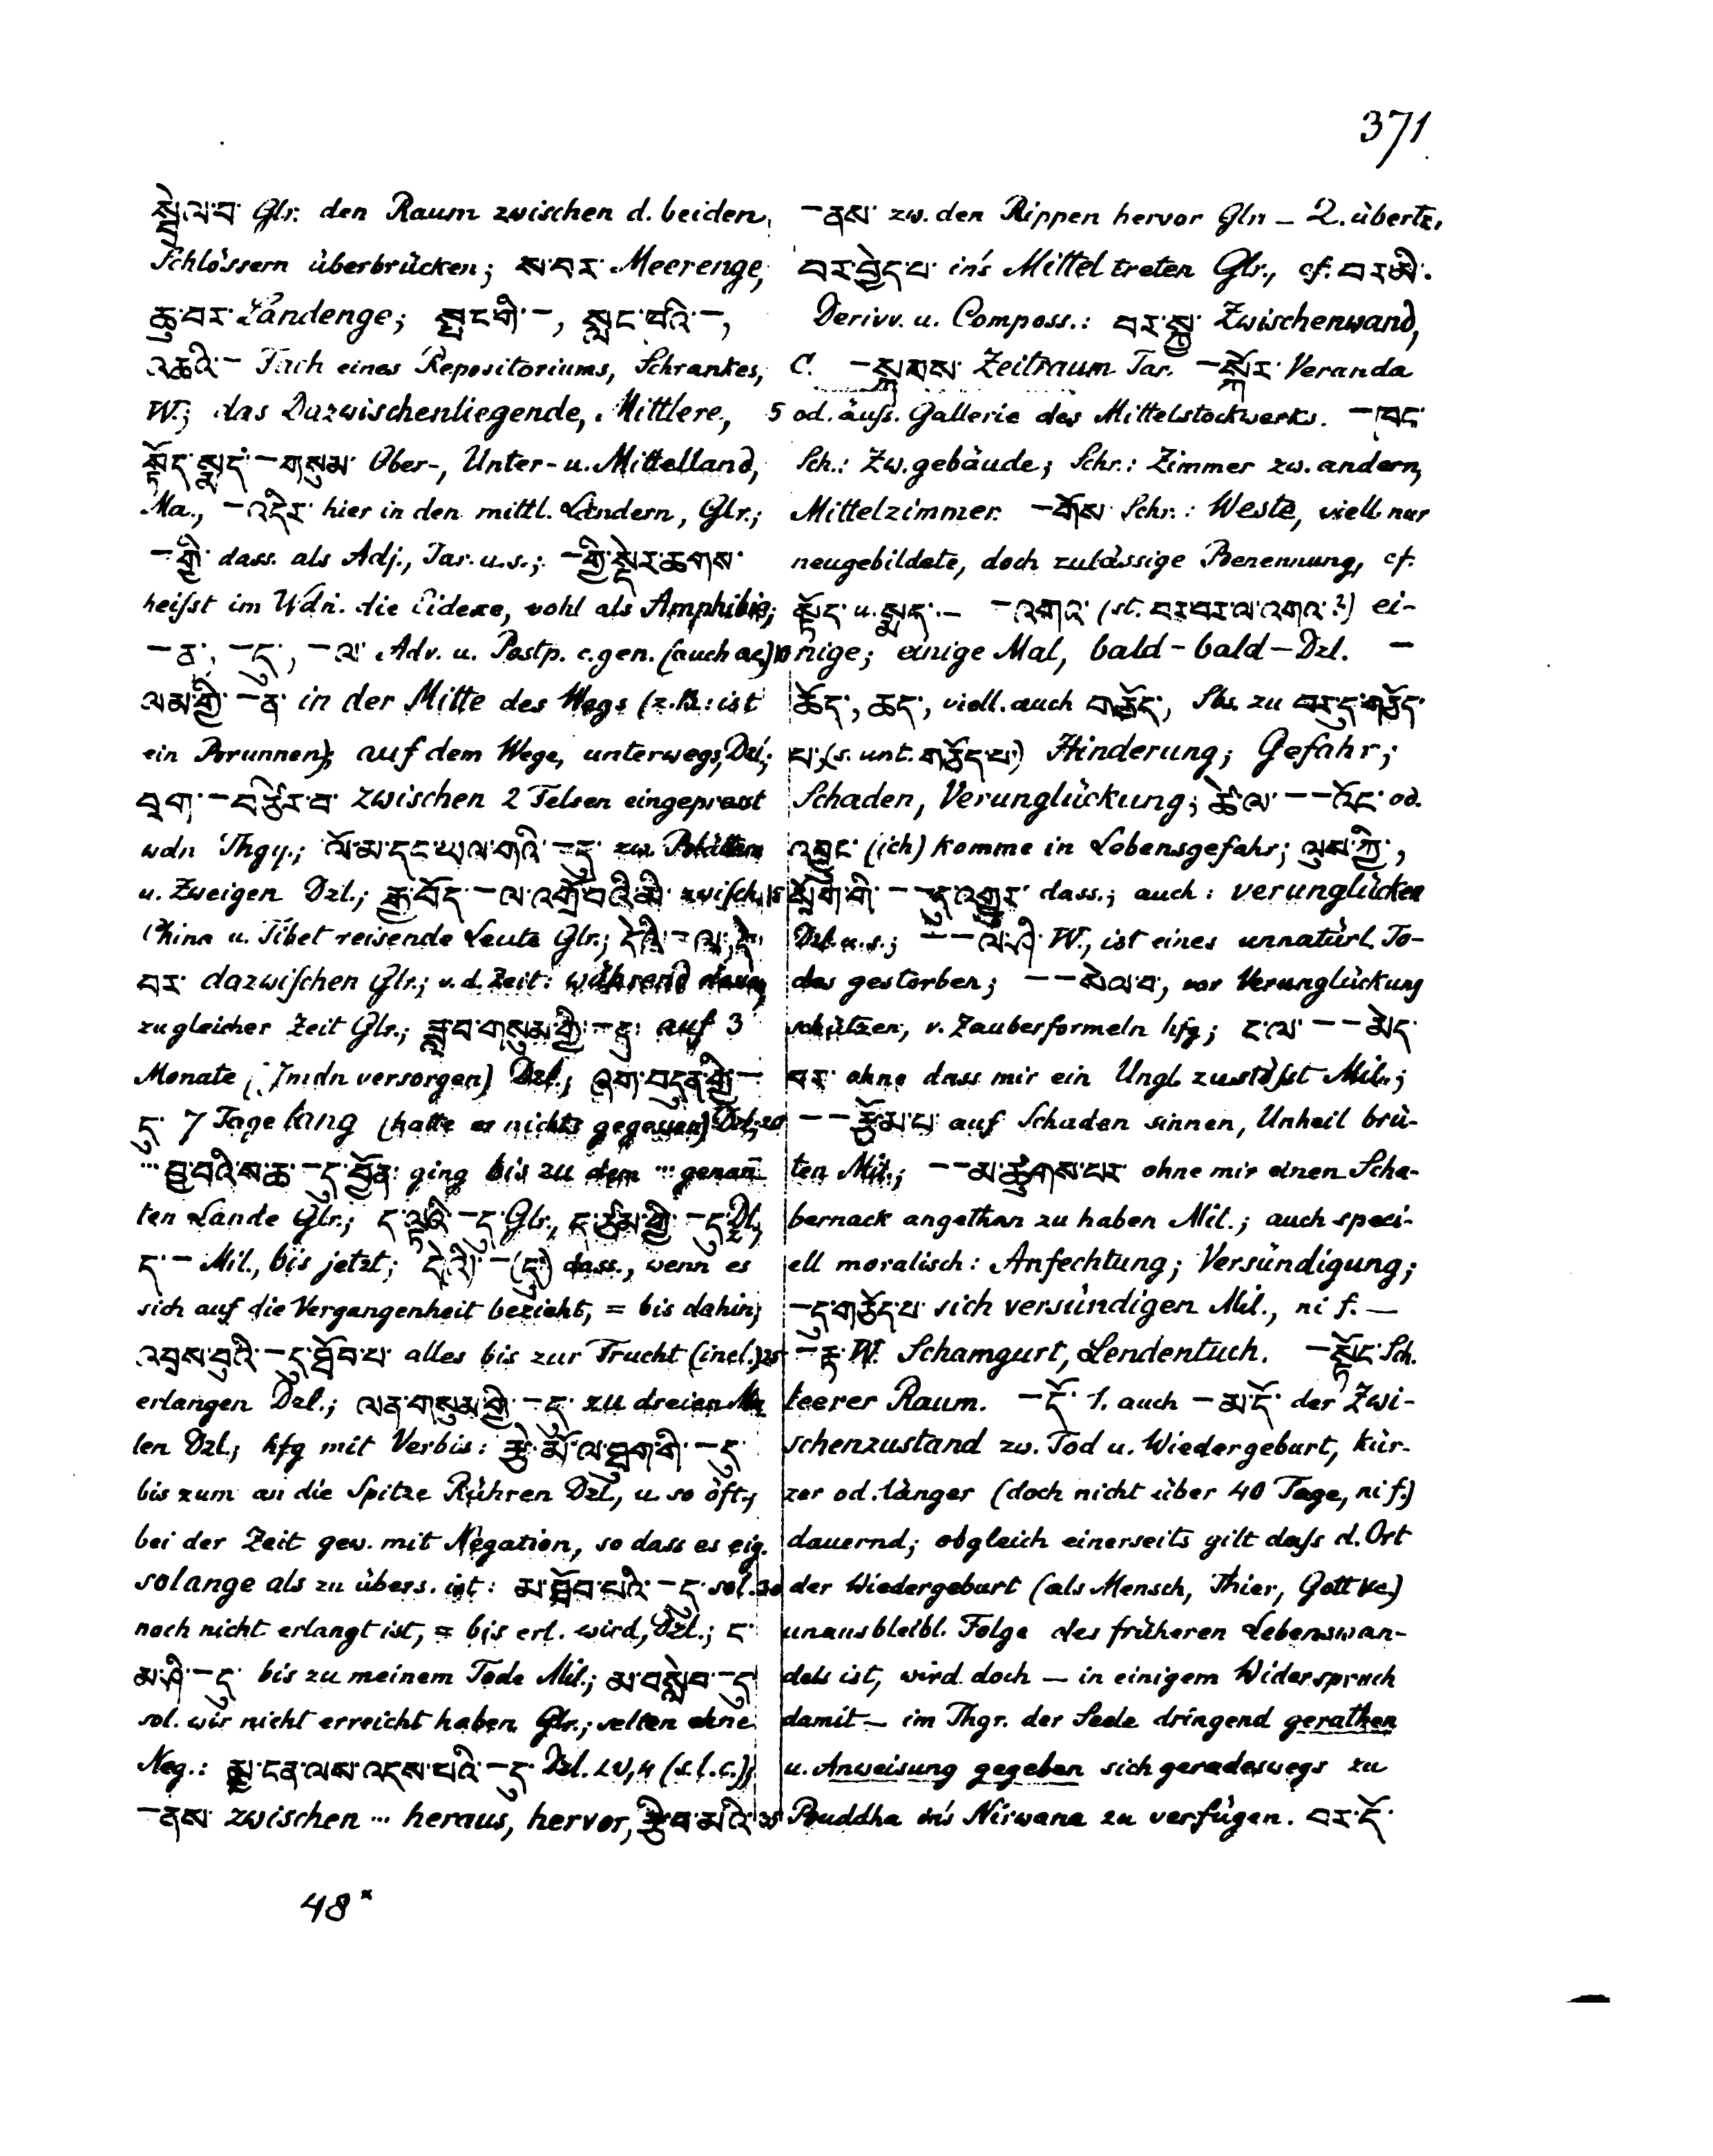 371
སྦྲེལ་བ་ Glr. den Raum zwischen d. beiden
Schlössern überbrücken; ས་བར་ Meerenge,
ཆུ་བར་ Landenge; སྤྲང་གི་ –, སྣང་བའི་ –,
འཆའི་ – Fach eines Repositoriums, Schrankes,
W.; das Dazwischenliegende, Mittlere,
སྟོད་སྨད་ – གསུམ་ Ober-, Unter- u. Mittelland,
Ma., – འདིར་ hier in den mittl. Ländern, Glr.;
– གྱི་ dass. als Adj., Tar. u. s.; – གྱི་སྡེར་ཆགས་
heifst im Wdn. die Eidexe, wohl als Amphibie;
– ན་, – དུ་, – ལ་ Adv. u. Postp. c. gen. (auch ac.)
ལམ་གྱི་ – ན་ in der Mitte des Wegs (z.B.: ist
ein Brunnen); auf dem Wege, unterwegs, Dzl.;
བྲག་ – བཙིར་བ་ zwischen 2 Felsen eingepresst
wdn Thgy.; ལོ་མ་དང་ཡལ་གའི་ – དུ་ zw. Blättern
u. Zweigen Dzl.; རྒྱ་བོད་ – ལ་འགྲོ་བའི་མི་ zwisch.
China u. Tibet reisende Leute Glr.; དེའི་ – ལ་, དེ་
བར་ dazwischen Glr.; v. d. Zeit: während dessen,
zu gleicher Zeit Glr.; ཟླ་བ་གསུམ་གྱི་ – དུ་ auf 3
Monate (Jmdn versorgen) Dzl.; ཞག་བདུན་གྱི་ –
དུ་ 7 Tage lang (hatte er nichts gegessen) Dzl.;
… བྱ་བའི་ས་ཆ་ – དུ་བྱོན་ ging bis zu dem … genan̄-
ten Lande Glr.; ད་ལྟའི་ – དུ་ Glr., ད་རྩམ་གྱི་ – དུ་ Dzl.,
ད་ – Mil., bis jetzt; དེའི་ – (དུ་) dass., wenn es
sich auf die Vergangenheit bezieht, = bis dahin;
འབྲས་བུའི་ – དུ་ཐོབ་པ་ alles bis zur Frucht (incl.)
erlangen Dzl.; ལན་གསུམ་གྱི་ – དུ་ zu dreien Ma-
len Dzl.; hfg mit Verbis: རྩེ་མོ་ལ་ཐུག་གི་ – དུ་
bis zum an die Spitze Rühren Dzl., u. so öft.;
bei der Zeit gew. mit Negation, so dass es eig.
solange als zu übers. ist: མ་ཐོབ་པའི་ – དུ་ sol.
noch nicht erlangt ist, = bis erl. wird, Dzl.; ང་
མ་ཤི་ – དུ་ bis zu meinem Tode Mil.; མ་བསླེབ་ – དུ་
sol. wir nicht erreicht haben Glr.; selten ohne
Neg.: མྱ་ངན་ལས་འདས་པའི་ – དུ་ Dzl. LV, 4 (s. l. c.);
– ནས་ zwischen … heraus, hervor, རྩིབ་མའི་
– ནས་ zw. den Rippen hervor Glr. – 2. übertr.
བར་བྱེད་པ་ in's Mittel treten Glr., cf. བར་མི་.
Derivv. u. Composs.: བར་སྐྱ་ Zwischenwand,
C. – སྐབས་ Zeitraum Tar. – སྐོར་ Veranda
5 od. äufs. Gallerie des Mittelstockwerks. – ཁང་
Sch.: Zw.gebäude; Schr.: Zimmer zw. andern,
Mittelzimmer. – གོས་ Schr.: Weste, viell. nur
neugebildete, doch zulässige Benennung, cf.
སྟོད་ u. སྨད་. – – འགའ་ (st. བར་བར་ལ་འགའ་?) ei-
10 nige; einige Mal, bald – bald – Dzl. –
ཆོད་, ཆད་, viell. auch གཅོད་, Sbs. zu བར་དུ་གཅོད་
པ་ (s. unt. གཅོད་པ་) Hinderung; Gefahr;
Schaden, Verunglückung; ཚེ་ལ་ – – འོང་ od.
འབྱུང་ (ich) komme in Lebensgefahr; ལུས་ཀྱི་,
15 སྲོག་གི་ – – དུ་འགྱུར་ dass.; auch: verunglücken
Dzl. u. s.; – – ལ་ཤི་ W., ist eines unnatürl. To-
des gestorben; – – སེལ་བ་, vor Verunglückung
schützen, v. Zauberformeln hfg; ང་ལ་ – – མེད་
པར་ ohne dass mir ein Ungl. zustöfst Mil.;
20 – – རྩོམ་པ་ auf Schaden sinnen, Unheil brü-
ten Mil.; – – མ་ཚུགས་པར་ ohne mir einen Scha-
bernack angethan zu haben Mil.; auch speci-
ell moralisch: Anfechtung; Versündigung;
– དུ་གཅོད་པ་ sich versündigen Mil., ni f. –
25 – རྟ་ W. Schamgurt, Lendentuch. – སྟོང་ Sch.
leerer Raum. – དོ་ 1. auch – མ་དོ་ der Zwi-
schenzustand zw. Tod u. Wiedergeburt, kür-
zer od. länger (doch nicht über 40 Tage, ni f.)
dauernd; obgleich einerseits gilt dafs d. Ort
30 der Wiedergeburt (als Mensch, Thier, Gott &c.)
unausbleibl. Folge des früheren Lebenswan-
dels ist, wird doch – in einigem Widerspruch
damit – im Thgr. der Seele dringend gerathen
u. Anweisung gegeben sich geradeswegs zu
35 Buddha in's Nirwana zu verfügen. བར་དོ་
48*